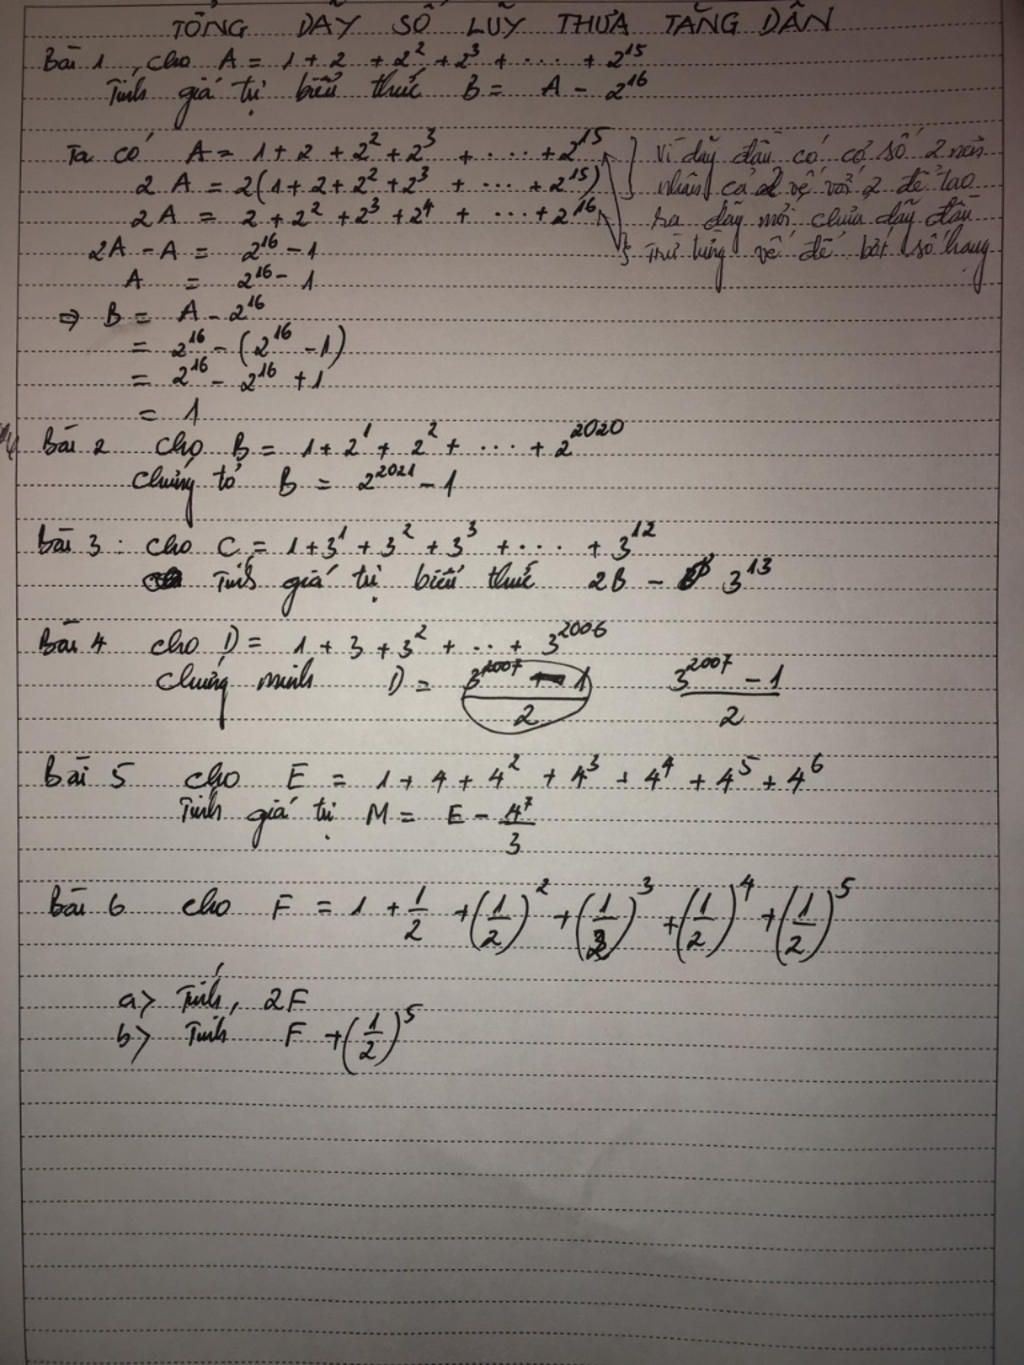 TỔNG DÃY SỐ LŨY THỪA TĂNG DẦN
Bài 1, cho A = 1 + 2 + 2² + 2³ + ... + 2¹⁵
Tính giá trị biểu thức B = A - 2¹⁶
Ta có A = 1 + 2 + 2² + 2³ + ... + 2¹⁵ } Vì dãy đầu có cơ số 2 nên
2A = 2(1 + 2 + 2² + 2³ + ... + 2¹⁵) nhân cả 2 vế với 2 để tạo
2A = 2 + 2² + 2³ + 2⁴ + ... + 2¹⁶ ra dãy mới chứa dãy đầu
2A - A = 2¹⁶ - 1 } Trừ từng vế để bớt số hạng
A = 2¹⁶ - 1
⇒ B = A - 2¹⁶
= 2¹⁶ - (2¹⁶ - 1)
= 2¹⁶ - 2¹⁶ + 1
= 1
Bài 2 cho B = 1 + 2¹ + 2² + ... + 2²⁰²⁰
Chứng tỏ B = 2²⁰²¹ - 1
Bài 3 : cho C = 1 + 3¹ + 3² + 3³ + ... + 3¹²
Tính giá trị biểu thức 2B - 3¹³
Bài 4 cho D = 1 + 3 + 3² + ... + 3²⁰⁰⁶
Chứng minh D = (3²⁰⁰⁷ - 1)/2 (3²⁰⁰⁷ - 1)/2
Bài 5 cho E = 1 + 4 + 4² + 4³ + 4⁴ + 4⁵ + 4⁶
Tính giá trị M = E - 4⁷/3
Bài 6 cho F = 1 + 1/2 + (1/2)² + (1/2)³ + (1/2)⁴ + (1/2)⁵
a> Tính, 2F
b> Tính F + (1/2)⁵